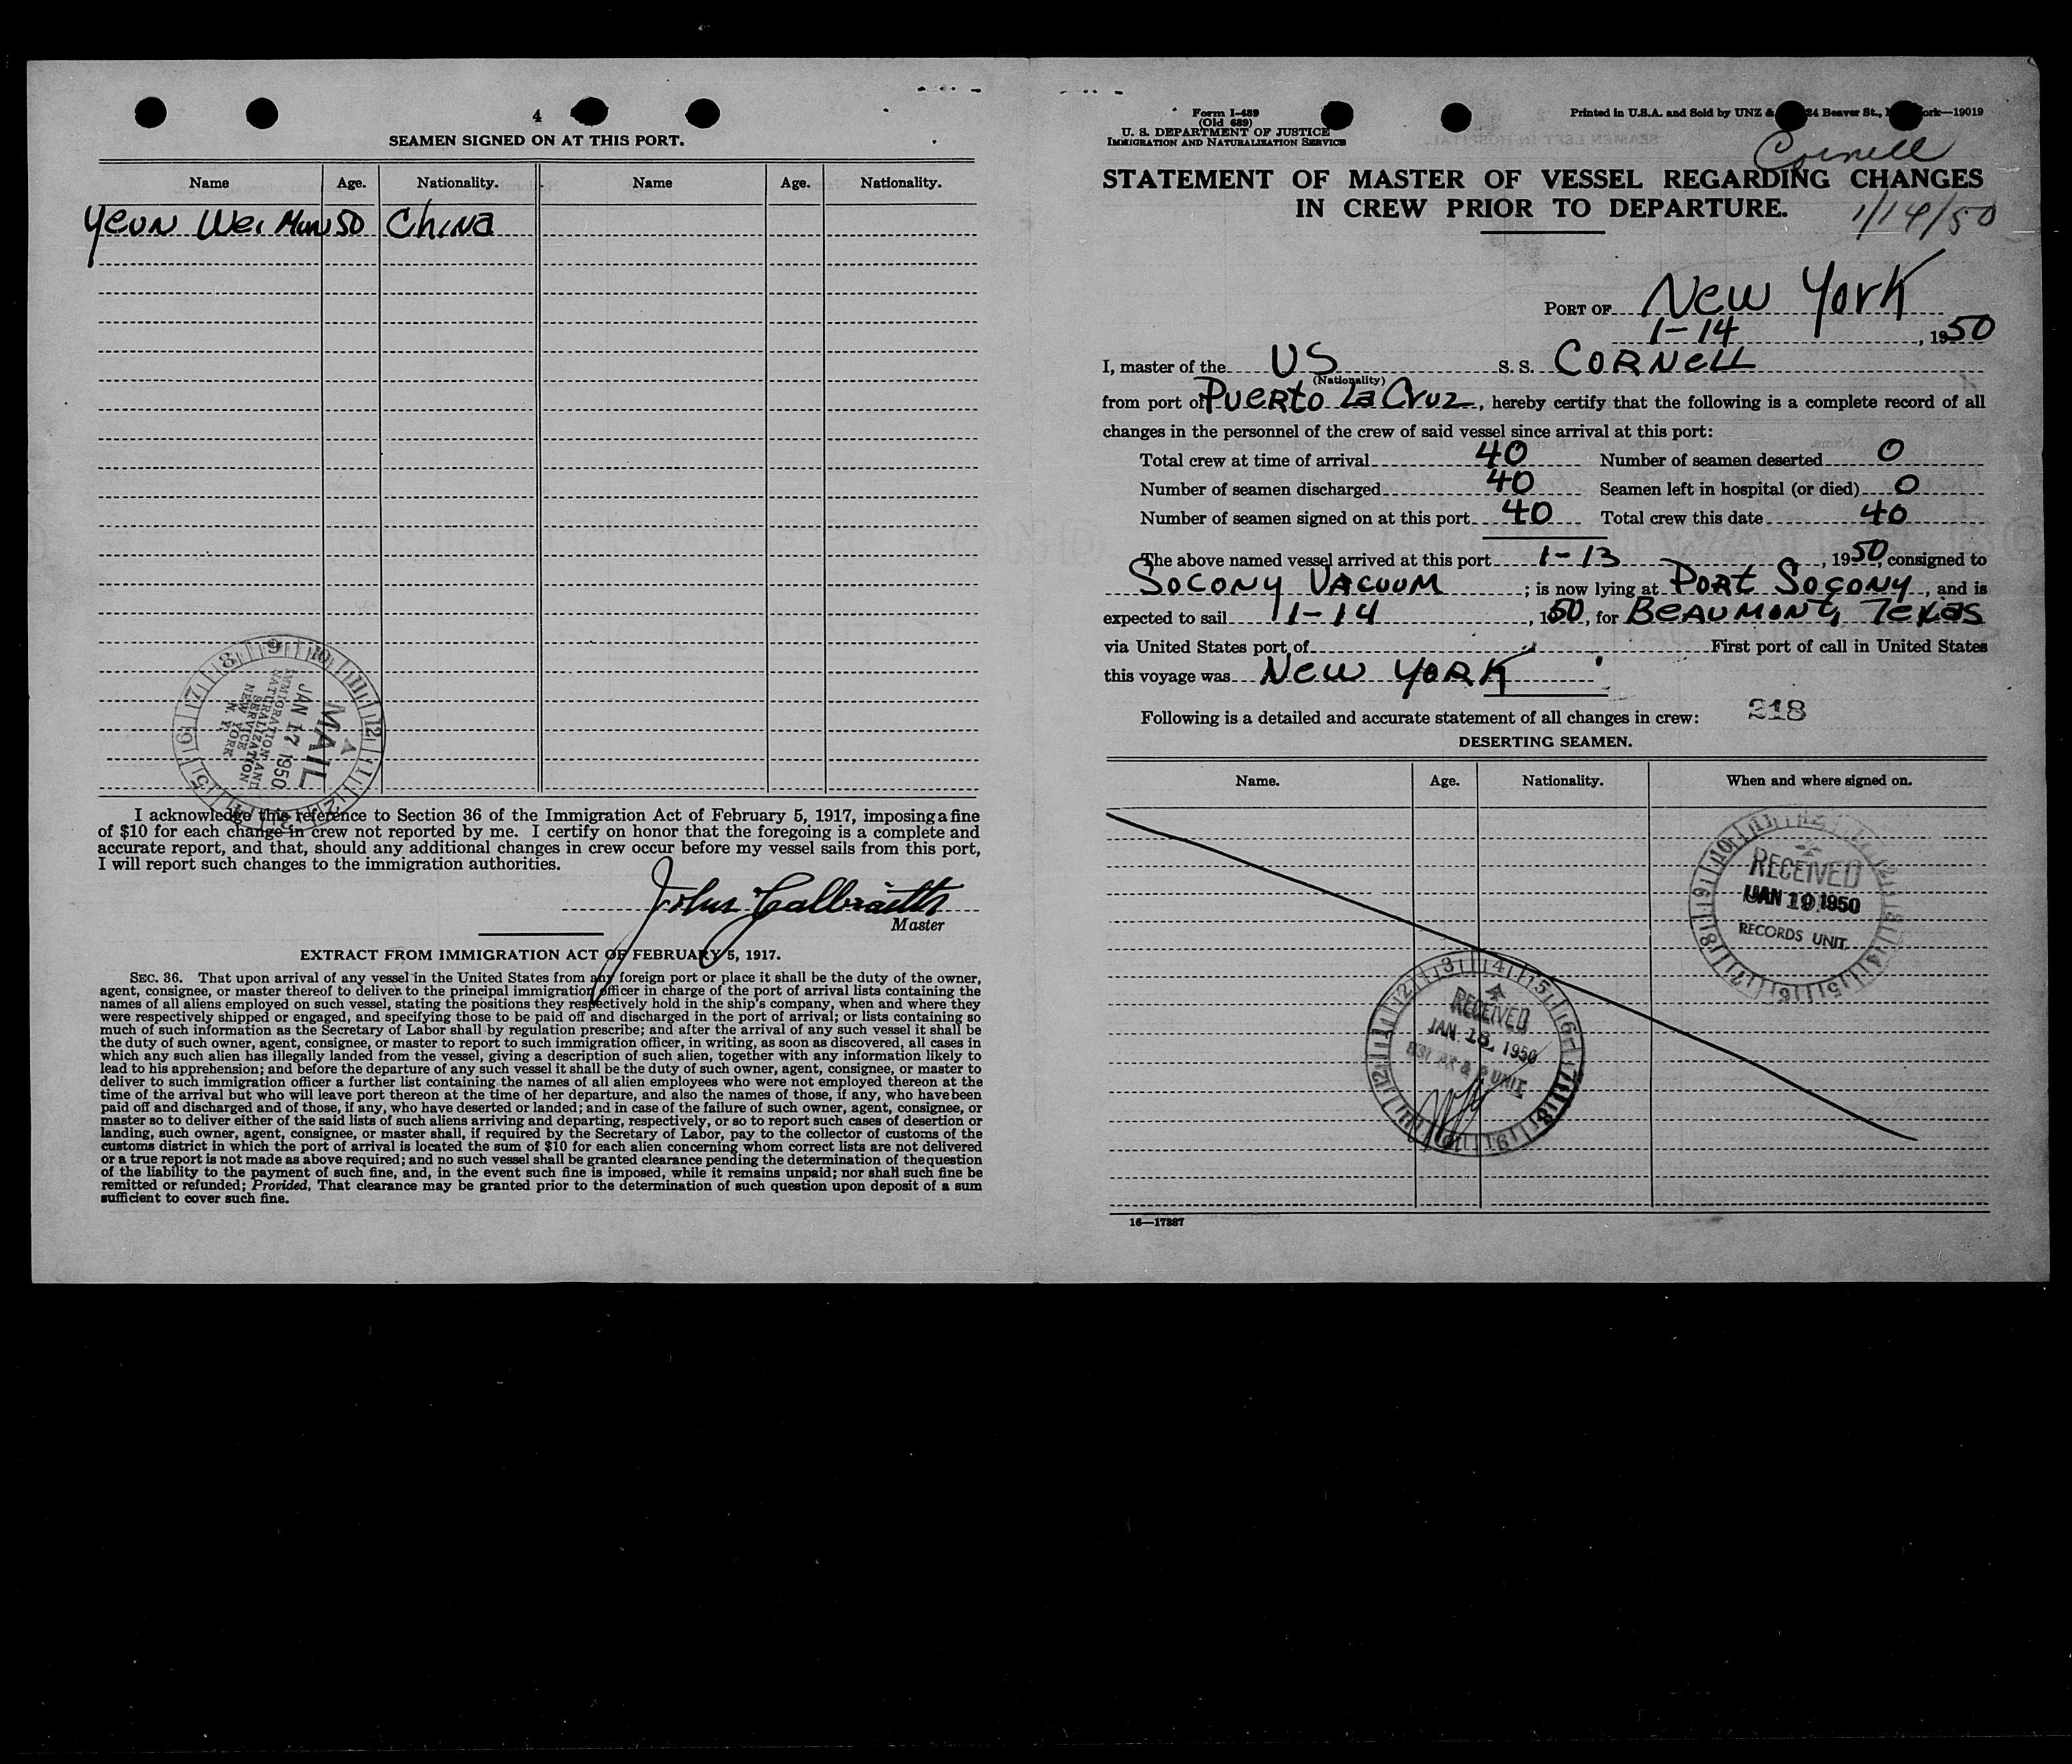 4
SEAMEN SIGNED ON AT THIS PORT.
Name Age. Nationality. Name Age. Nationality.
Yeun Wei Mun 50 China
MAIL
JAN 17 1950
IMMIGRATION AND
NATURALIZATION
SERVICE
NEW YORK
N Y
I acknowledge this reference to Section 36 of the Immigration Act of February 5, 1917, imposing a fine
of $10 for each change in crew not reported by me. I certify on honor that the foregoing is a complete and
accurate report, and that, should any additional changes in crew occur before my vessel sails from this port,
I will report such changes to the immigration authorities.
John Galbraith
Master
EXTRACT FROM IMMIGRATION ACT OF FEBRUARY 5, 1917.
SEC. 36. That upon arrival of any vessel in the United States from any foreign port or place it shall be the duty of the owner,
agent, consignee, or master thereof to deliver to the principal immigration officer in charge of the port of arrival lists containing the
names of all aliens employed on such vessel, stating the positions they respectively hold in the ship's company, when and where they
were respectively shipped or engaged, and specifying those to be paid off and discharged in the port of arrival; or lists containing so
much of such information as the Secretary of Labor shall by regulation prescribe; and after the arrival of any such vessel it shall be
the duty of such owner, agent, consignee, or master to report to such immigration officer, in writing, as soon as discovered, all cases in
which any such alien has illegally landed from the vessel, giving a description of such alien, together with any information likely to
lead to his apprehension; and before the departure of any such vessel it shall be the duty of such owner, agent, consignee, or master to
deliver to such immigration officer a further list containing the names of all alien employees who were not employed thereon at the
time of the arrival but who will leave port thereon at the time of her departure, and also the names of those, if any, who have been
paid off and discharged and of those, if any, who have deserted or landed; and in case of the failure of such owner, agent, consignee, or
master so to deliver either of the said lists of such aliens arriving and departing, respectively, or so to report such cases of desertion or
landing, such owner, agent, consignee, or master shall, if required by the Secretary of Labor, pay to the collector of customs of the
customs district in which the port of arrival is located the sum of $10 for each alien concerning whom correct lists are not delivered
or a true report is not made as above required; and no such vessel shall be granted clearance pending the determination of the question
of the liability to the payment of such fine, and, in the event such fine is imposed, while it remains unpaid; nor shall such fine be
remitted or refunded; Provided, That clearance may be granted prior to the determination of such question upon deposit of a sum
sufficient to cover such fine.
Form I-489
(Old 689)
U. S. DEPARTMENT OF JUSTICE
IMMIGRATION AND NATURALIZATION SERVICE
Printed in U.S.A. and Sold by UNZ & 24 Beaver St., ork—19019
Cornell
STATEMENT OF MASTER OF VESSEL REGARDING CHANGES
IN CREW PRIOR TO DEPARTURE.
1/14/50
PORT OF New York
1-14, 1950
I, master of the US S. S. CORNELL
(Nationality)
from port of Puerto La Cruz, hereby certify that the following is a complete record of all
changes in the personnel of the crew of said vessel since arrival at this port:
Total crew at time of arrival 40 Number of seamen deserted 0
Number of seamen discharged 40 Seamen left in hospital (or died) 0
Number of seamen signed on at this port 40 Total crew this date 40
The above named vessel arrived at this port 1-13, 1950, consigned to
SOCONY VACUUM; is now lying at PORT SOCONY, and is
expected to sail 1-14, 1950, for BEAUMONT, Texas
via United States port of First port of call in United States
this voyage was New YORK
Following is a detailed and accurate statement of all changes in crew: 218
DESERTING SEAMEN.
Name. Age. Nationality. When and where signed on.
RECEIVED
JAN 19 1950
RECORDS UNIT
RECEIVED
JAN 18 1950
UNIT
16—17887